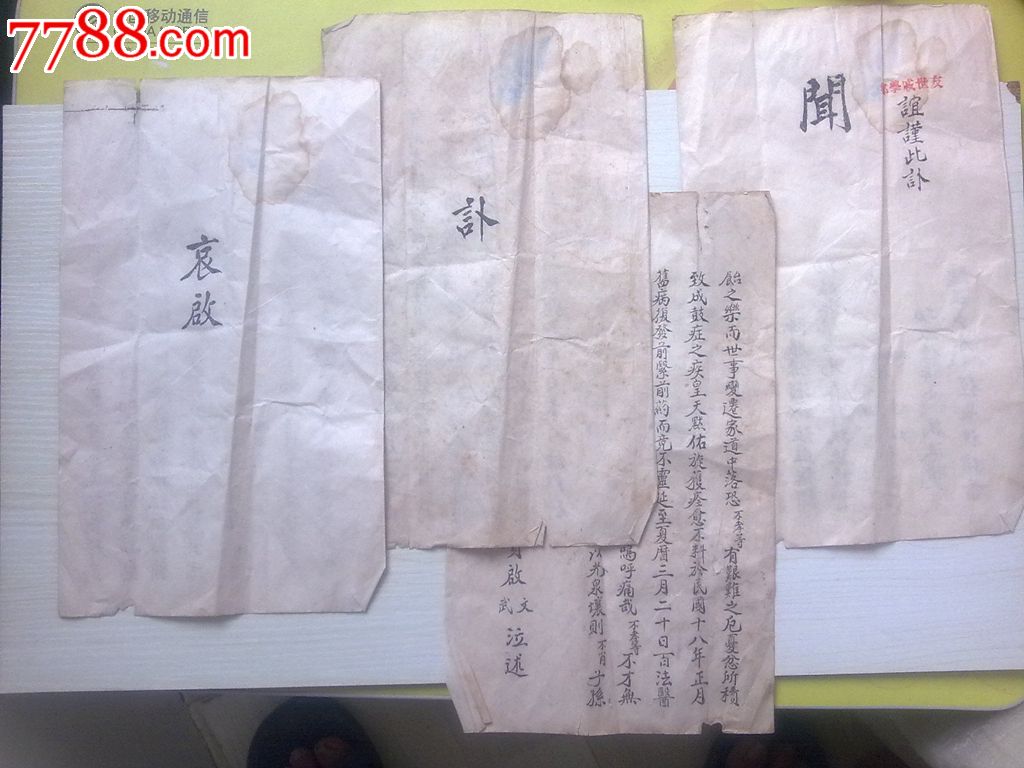 7788.com
移动通信
哀啟
訃
聞
友世戚學
誼謹此訃
飴之樂而世事變遷家道中落恐不孝等有艱難之厄憂忿所積
致成鼓症之疾皇天默佑旋獲痊愈不料於民國十八年正月
舊病復發前縈前葯而竟不靈延至夏曆三月二十日百法醫
嗚呼痛哉不孝等不才無
光泉壤則不肖子孫
啟文武泣述